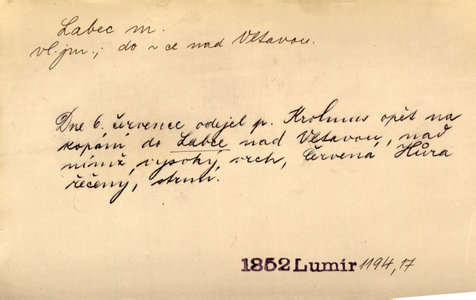 Labec m.
vl. jm.; do ~ce nad Vltavou.
Dne 6. července odejel p. Krolmus opět na
kopání do Labce nad Vltavou, nad
nímž vysoký vrch, Červená Hůra
řečený, strmí.
1852 Lumír 1194,17